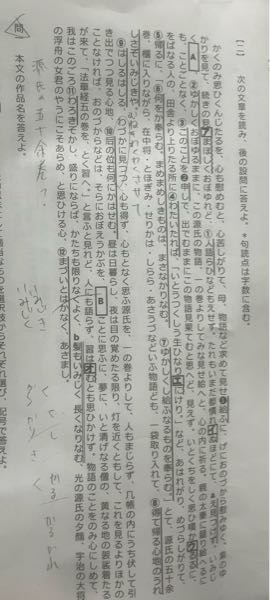 【一】 次の文章を読み、後の設問に答えよ。＊句読点は字数に含む。
かくのみ思ひくんじたるを、心も慰めむと、心苦しがりて、母、物語など求めて見せ①給ふに、げにおのづから慰みゆく。紫のゆ
かりを見て、続きの見アまほしくおぼゆれど、人語らひなどもえせず。たれもいまだ都慣れイぬほどにて、a え見つけず。いみじ
く A 、②ゆかしくおぼゆるままに、「この源氏の物語、一の巻よりしてみな見せ給へ」と、心の内に祈る。親の太秦に籠り給へるに
も、ことごとなく、このことを③申して、出でむままにこの物語見果てむと思へど、見えず。いとくちをしく思ひ嘆かるるウに、
をばなる人の、田舎より上りたる所に④わたいたれば、「いとうつくしう生ひなりエにけり。」など、あはれがり、めづらしがりて、
⑤帰るに、「⑥何をか奉らむ。まめまめしきものは、まさなかりなむ。⑦ゆかしくし給ふなるものを奉らむ。」とて、源氏の五十余
巻、櫃に入りながら、在中将・とほぎみ・せりかは・しらら・あさうづなどいふ物語ども、一袋取り入れて、⑧得て帰る心地のうれ
しさぞいみじきや。
⑨はしるはしる、わづかに見つつ、心も得ず、心もとなく思ふ源氏を、一の巻よりして、人もまじらず、几帳の内にうち伏して引
き出でつつ見る心地、⑩后の位も何にかはせむ。昼は日暮らし、夜は目の覚めたる限り、灯を近くともして、これを見るよりほかの
ことなければ、おのづからなどは、そらにおぼえうかぶを、 B ことに思ふに、夢に、いと清げなる僧の、黄なる地の袈裟着たる
が来て、「法華経五の巻を、とく習へ。」と言ふと見れど、人にも語らず、習はオむとも思ひかけず、物語のことをのみ心にしめて、
我はこのごろ⑪わろきぞかし、盛りにならば、かたちも限りなくよく、b 髪もいみじく長くなりなむ、光の源氏の夕顔、宇治の大将
の浮舟の女君のやうにこそあらめ、と思ひける心、⑫まづいとはかなく、あさまし。
問 本文の作品名を答えよ。